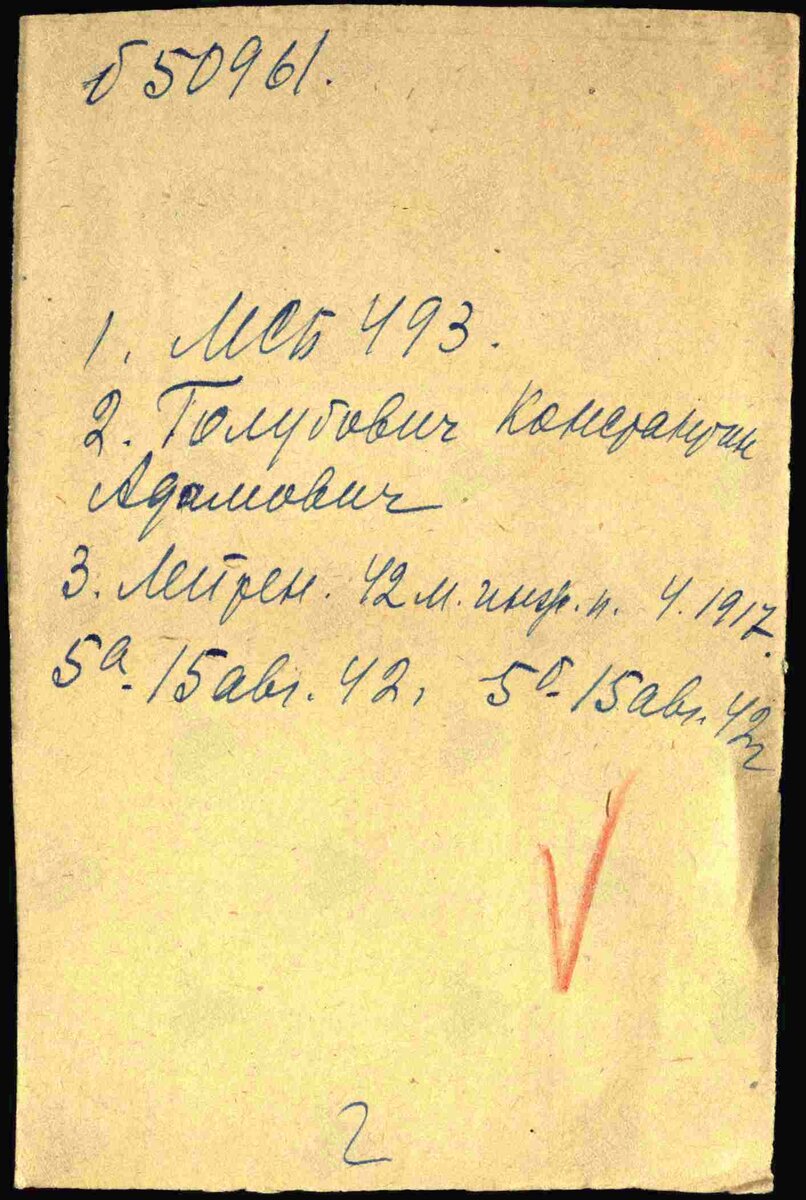 б50961.
1. МСБ 493.
2. Голубович Константин
Адамович
3. Лейтен. 42 м. инж. п. 4. 1917.
5а- 15 авг. 42, 5б- 15 авг. 42
2